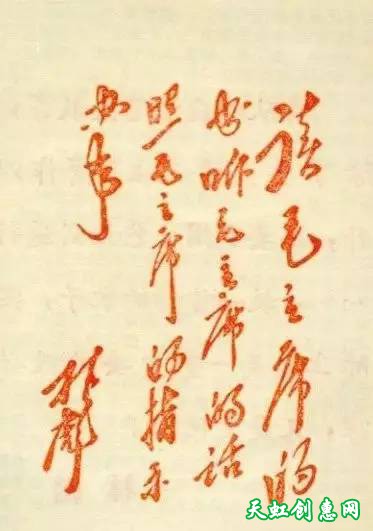 读毛主席的
书听毛主席的话
照毛主席的指示
办事
林彪
天虹创惠网
www.thch.net.cn